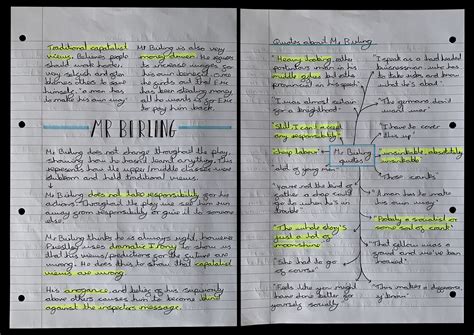 Traditional capitalist
views. Believes people
should work harder,
very selfish and
others to
himself. "a man has
to make his own way"
Mr Birling is also very
money driven. He refuses
to increase wages for
his own benefit. Once
the girls out that Eric
has been stealing money
all he wants is for Eric
to pay him back.
MR BIRLING
Mr Birling does not change throughout the play,
showing how he hasn't learnt anything. This
represents how the upper middle classes were
stubborn and held traditional views.
Mr Birling does not take responsibility for his
actions. Throughout the play we see him run
away from responsibility or give it to someone
else.
Mr Birling thinks he is always right, however
Priestley uses dramatic irony to show us
that his views/predictions for the future are
wrong. He does this to show that capitalist
views are wrong.
His arrogance, and belief of his superiority
above others causes him to become
against the inspectors message.
Quotes about Mr Birling
"Heavy looking, rather
portentous man in his
middle fifties but rather
provincial in his speech"
"I was almost certain for
a knighthood"
"Still, I can't accept
any responsibility"
"cheap labour"
"lot of young men"
"You're not the kind of
father a chap could
go to when he's in
trouble"
"The whole story's
just a lot of
moonshine"
"She had to go
of course"
"Feels like you might
have done better for
yourself socially"
Mr Birling
quotes
"I speak as a hard headed
businessman, who has
to take risks and know
what he's about"
"The germans don't
want war"
"I have to cover
this
"unsinkable, absolutely
unsinkable"
"These cranks"
"A man has to make
his own way"
"Probably a socialist or
some sort of crank"
"That fellow was a
fraud and we've been
hoaxed"